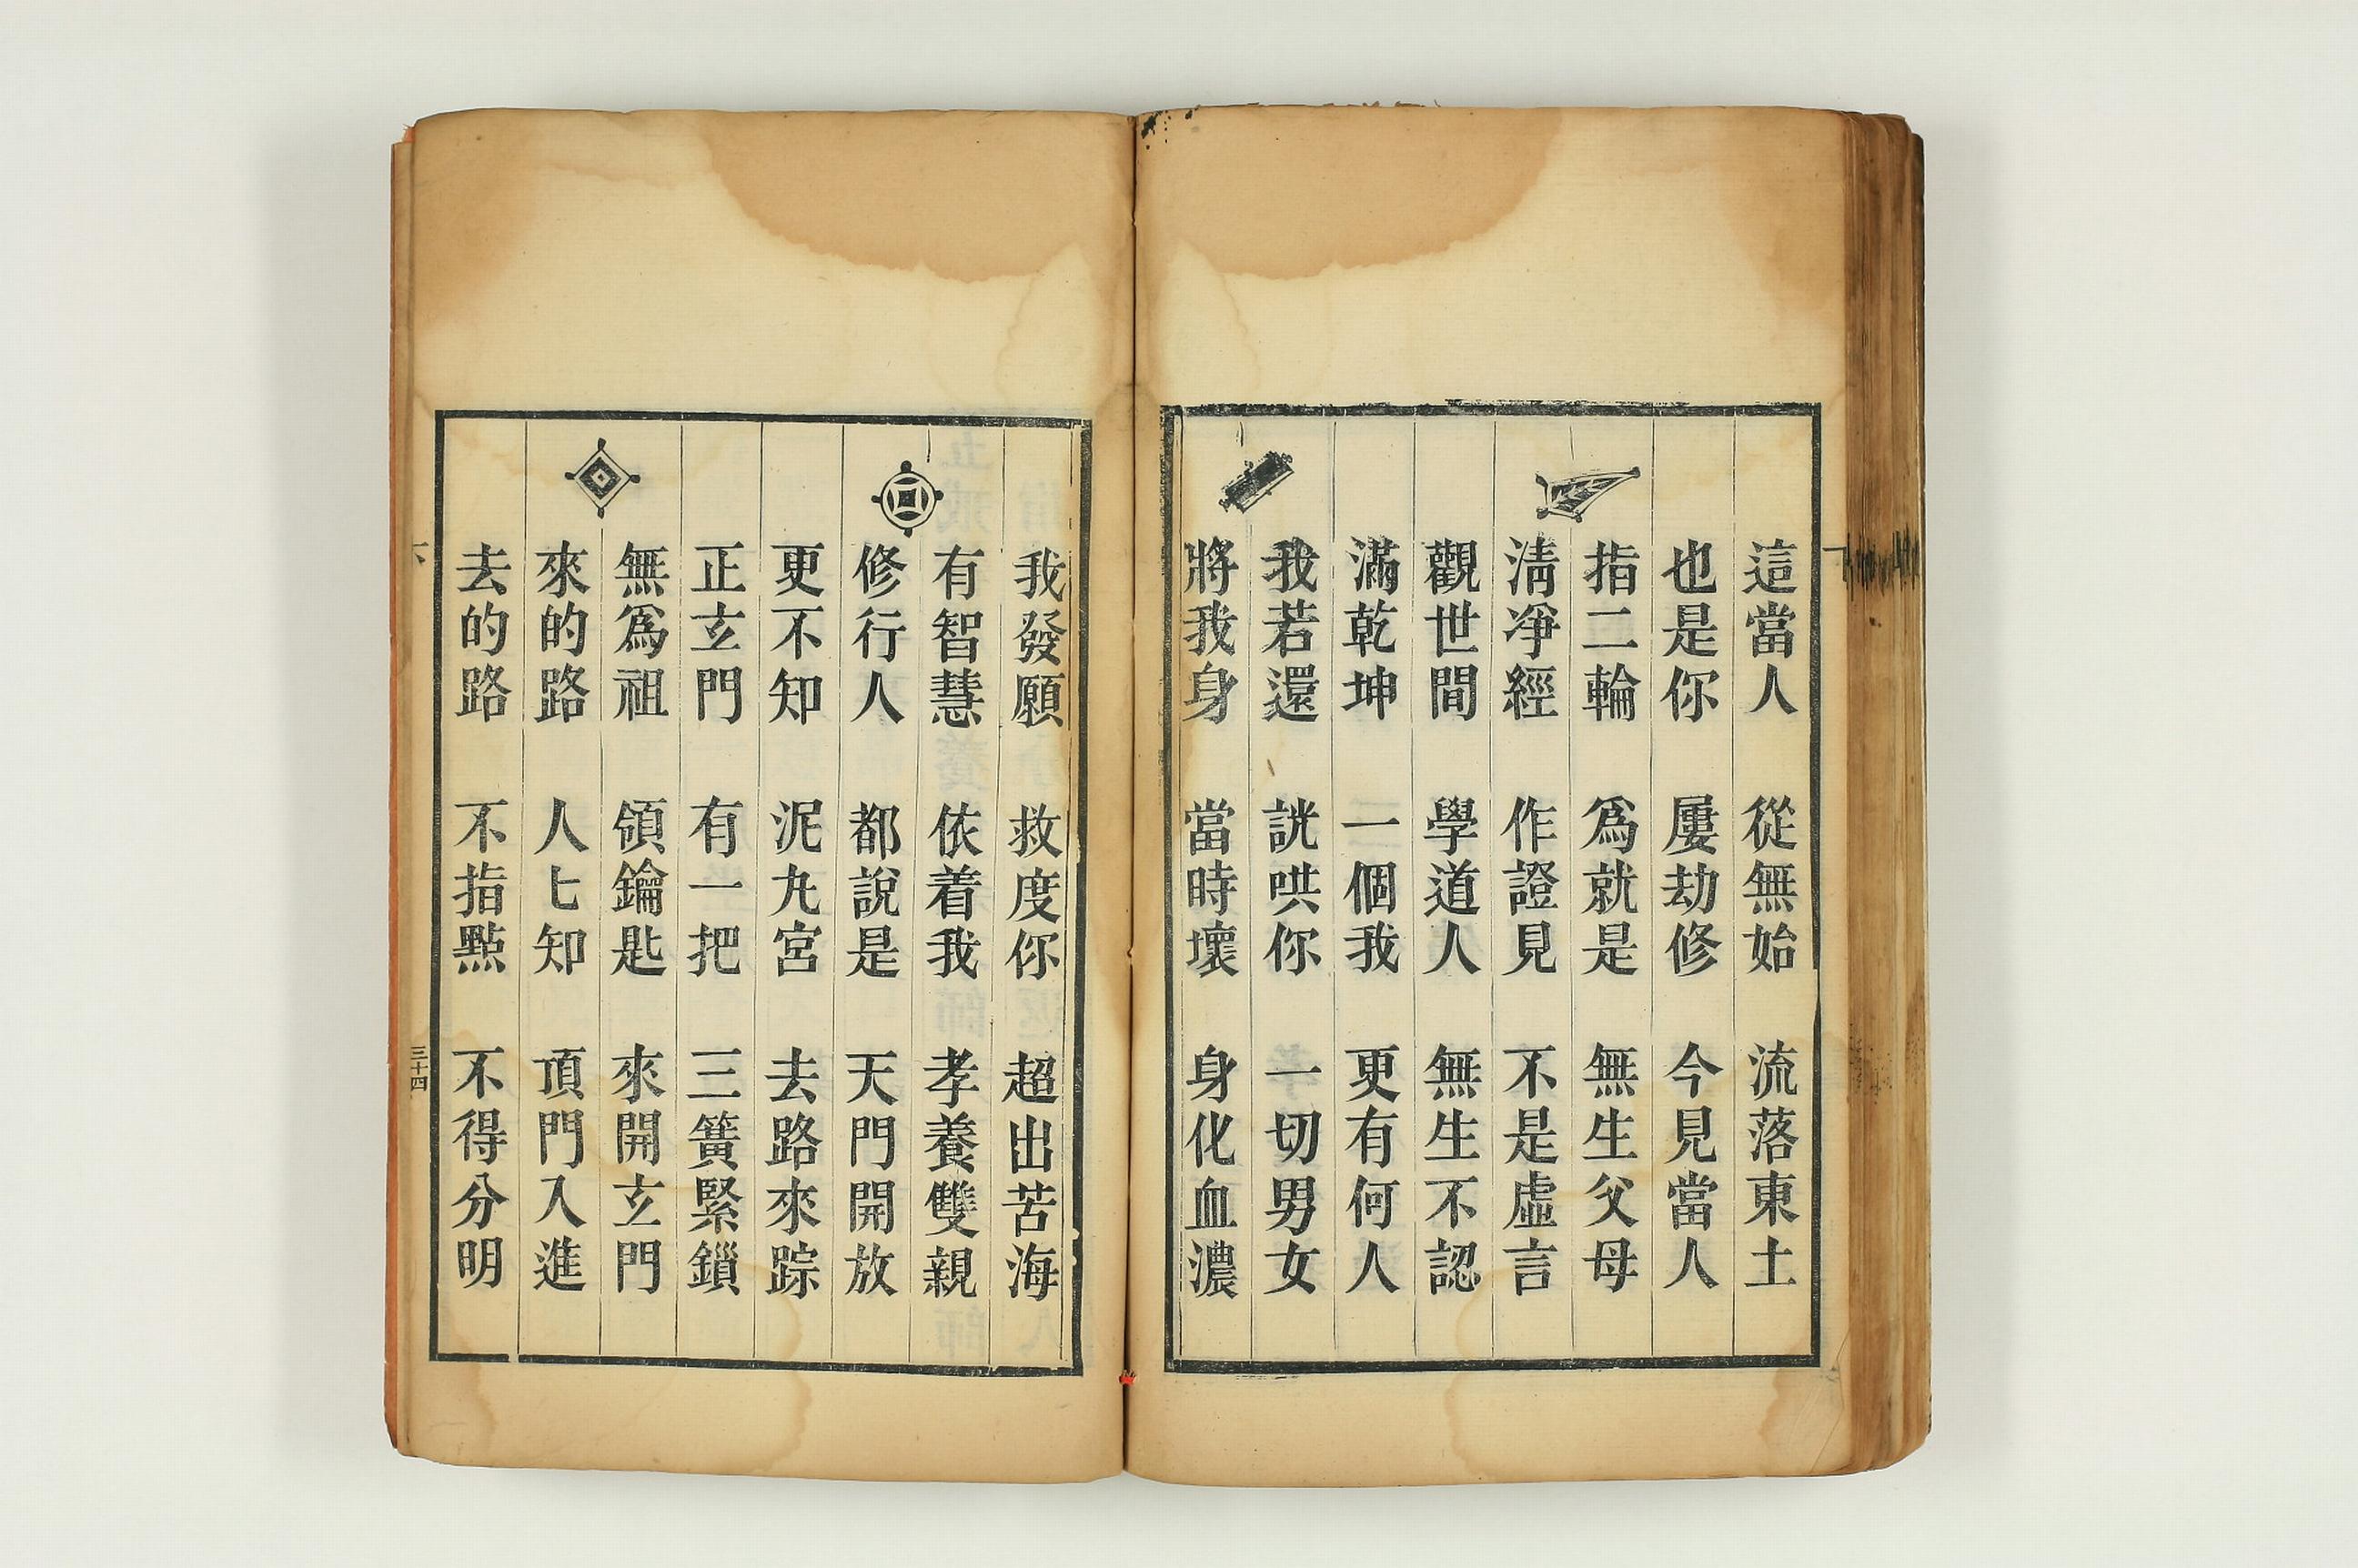 這當人 從無始 流落東土
也是你 屢劫修 今見當人
指二輪 爲就是 無生父母
淸凈經 作證見 不是虛言
觀世間 學道人 無生不認
滿乾坤 一個我 更有何人
我若還 誆哄你 一切男女
將我身 當時壞 身化血濃
我發願 救度你 超出苦海
有智慧 依着我 孝養雙親
修行人 都說是 天門開放
更不知 泥九宮 去路來踪
正玄門 有一把 三簧緊鎖
無爲祖 領鑰匙 來開玄門
來的路 人七知 頂門入進
去的路 不指點 不得分明
三十四